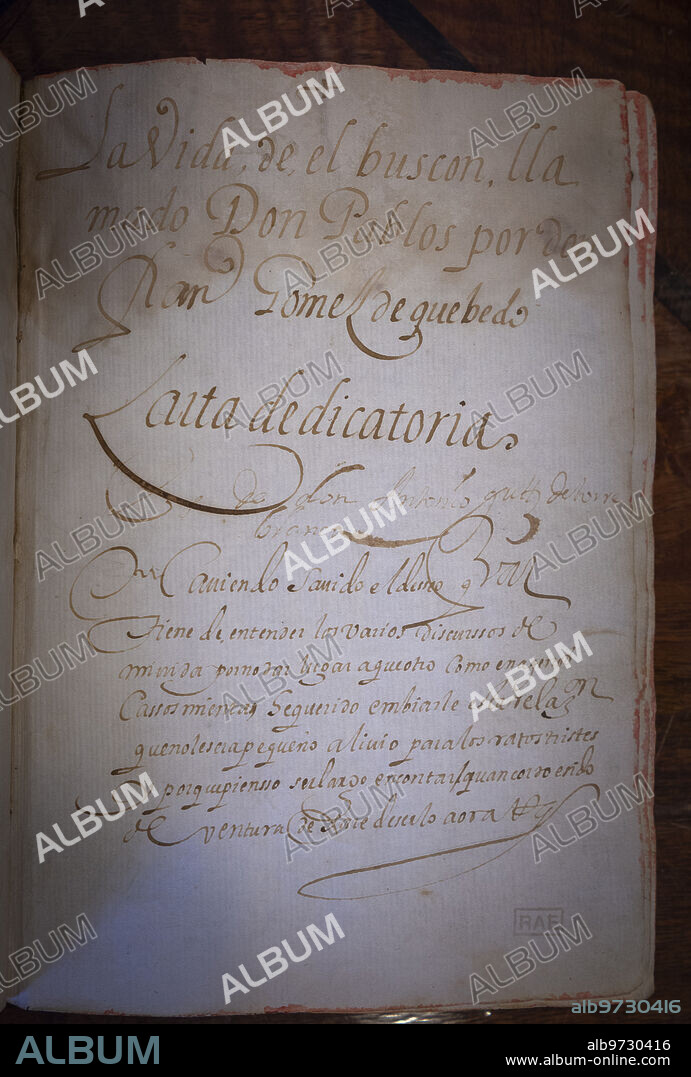 La Vida, de, el buscon, lla
mado Don Pablos por don
Fran^co Gomez de quebedo
Carta dedicatoria,
de don Antonio
Caviendo Savido el deseo q Vm
tiene de, entender los varios discurssos de
mi vida por no dar lugar a que otro como en agenos
Cassos mienta, he querido embiarle esta relaz^on
que no le sera pequeño alivio para los ratos tristes
porque piensso ser largo en contar quan corto e sido
de ventura dejare deserlo aora
RAE
ALBUM
alb9730416
ALBUM
alb9730416
www.album-online.com